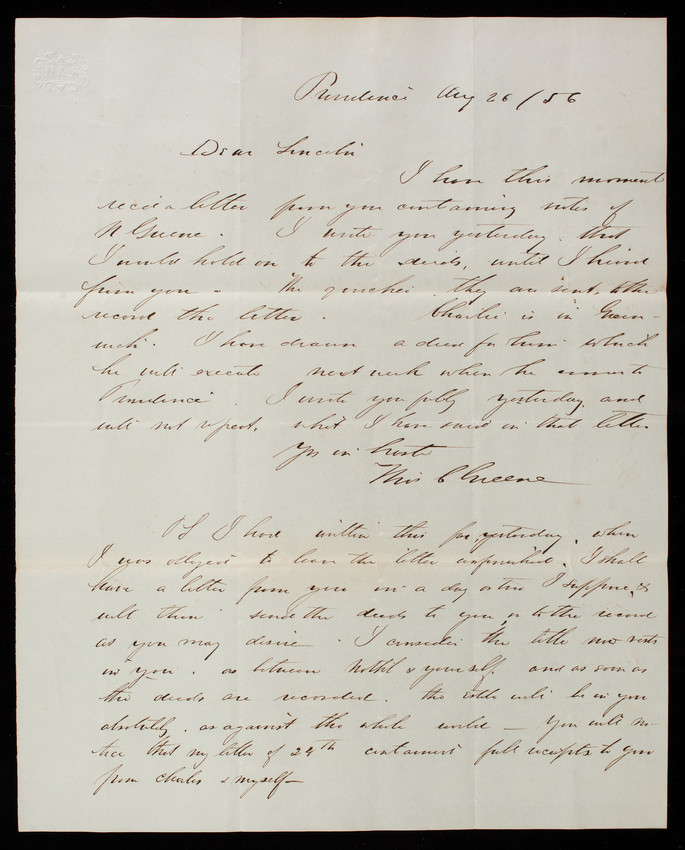 Providence Aug 26 / 56
Dear Lincoln
I have this moment
recd a letter from you containing notes of
N Greene. I wrote you yesterday that
I would hold on to the deeds, until I heard
from you. The they are sent, to the
record the better. Charlie is in Green-
wich. I have drawn a deed for him which
he will execute next week when he comes to
Providence. I wrote you fully yesterday, and
will not repeat, what I have said in that letter
Yrs in haste
Thos C Greene
PS I had written this far, yesterday, when
I was obliged to leave the letter unfinished. I shall
have a letter from you in a day or two I suppose, &
will then send the deeds to you, or to the record
as you may desire. I consider the title now rests
in you. as between Nathl & yourself. and as soon as
the deeds are recorded. the title will be in you
absolutely. as against the whole world — You will no-
tice that my letter of 24th contained full receipts to you
from Charles & myself—